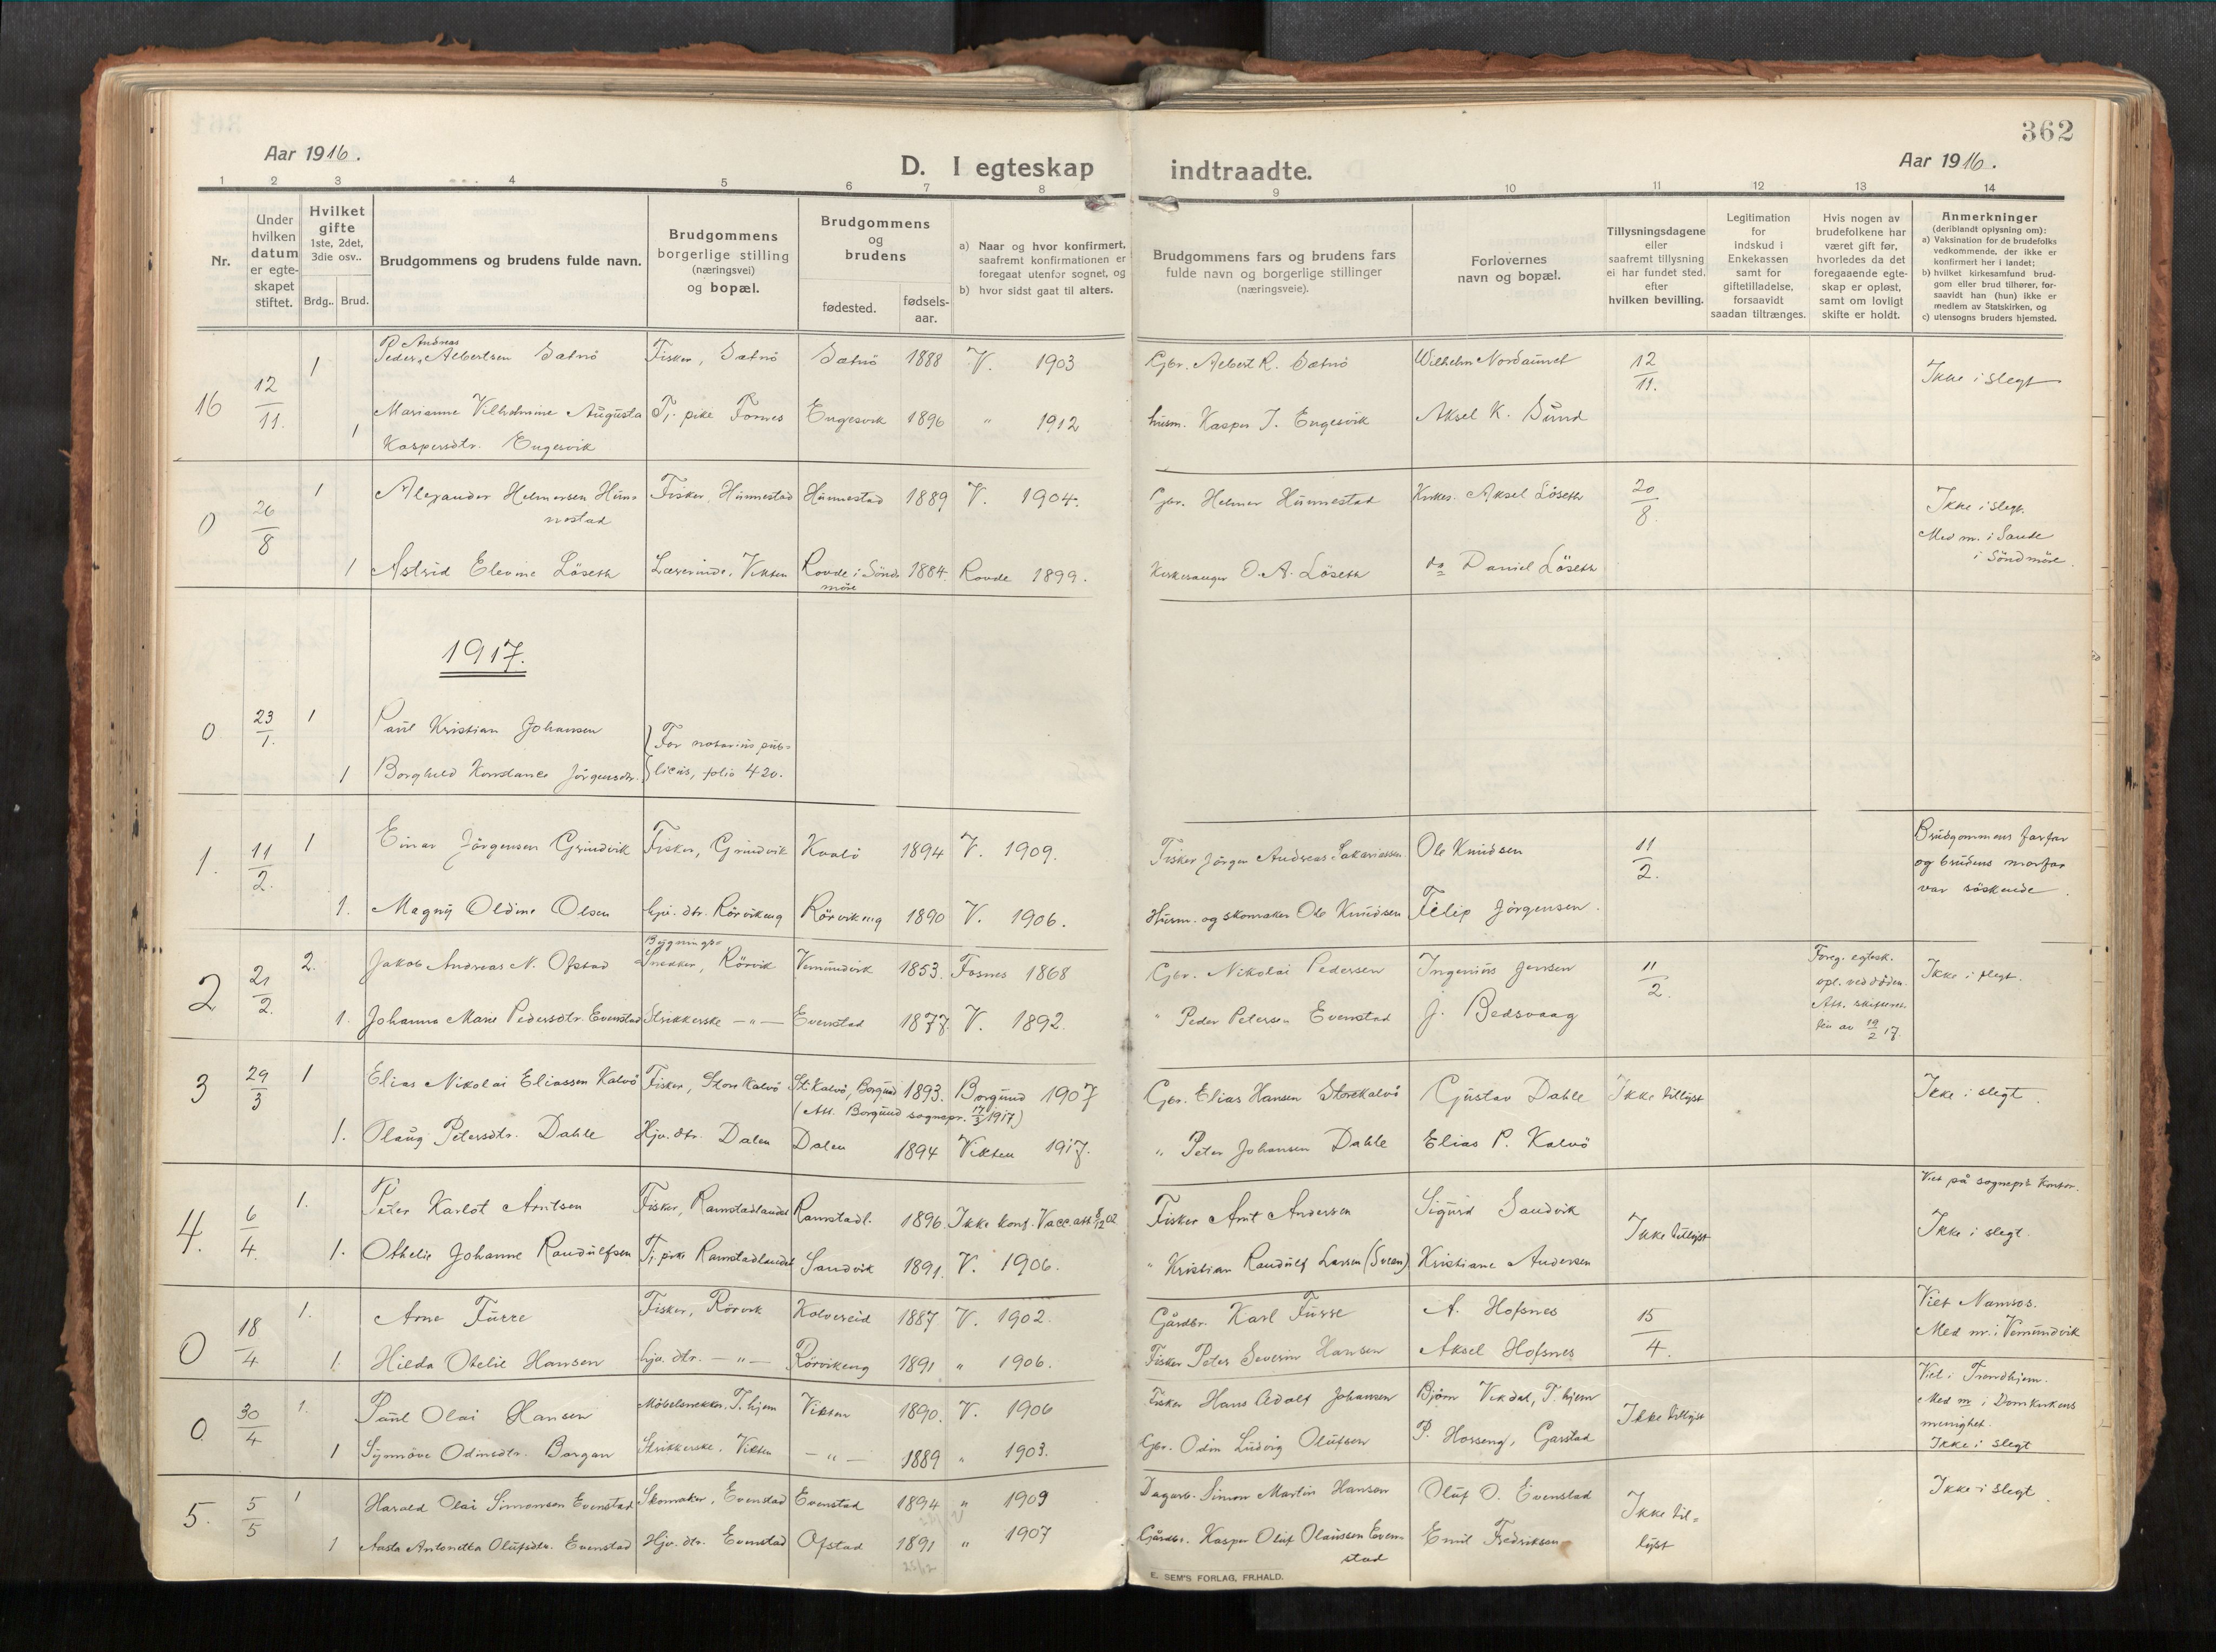 362
Aar 1916.
D. I egteskap indtraadte.
Aar 1916.
1 2 3 4 5 6 7 8 9 10 11 12 13 14
Nr.
Under hvilken datum er egteskapet stiftet.
Hvilket gifte 1ste, 2det, 3die osv..
Brdg.. Brud.
Brudgommens og brudens fulde navn.
Brudgommens borgerlige stilling (næringsvei) og bopæl.
Brudgommens og brudens
fødested. fødsels-aar.
a) Naar og hvor konfirmert, saafremt konfirmationen er foregaat utenfor sognet, og
b) hvor sidst gaat til alters.
Brudgommens fars og brudens fars fulde navn og borgerlige stillinger (næringsveie).
Forlovernes navn og bopæl.
Tillysningsdagene eller saafremt tillysning ei har fundet sted, efter hvilken bevilling.
Legitimation for indskud i Enkekassen samt for giftetilladelse, forsaavidt saadan tiltrænges.
Hvis nogen av brudefolkene har været gift før, hvorledes da det foregaaende egteskap er opløst, samt om lovligt skifte er holdt.
Anmerkninger
(deriblandt oplysning om):
a) Vaksination for de brudefolks vedkommende, der ikke er konfirmert her i landet;
b) hvilket kirkesamfund brudgom eller brud tilhører, forsaavidt han (hun) ikke er medlem av Statskirken, og
c) utensogns bruders hjemsted.
16 12/11. 1 Peder Andreas Albertsen Sætnö Fisker, Sætnö Sætnö 1888 V. 1903 Gbr. Albert R. Sætnö Wilhelm Nordaunet 12/11. Ikke i slegt
1 Marianne Vilhelmine Augusta Tj. pike Fornes Engesvik 1896 " 1912 husm. Kasper J. Engesvik Aksel K. Sund
Kaspersdtr. Engesvik
0 26/8 1 Alexander Helmersen Hunnestad Fisker, Hunnestad Hunnestad 1889 V. 1904. Gbr. Helmer Hunnestad Kirkes. Aksel Löseth 20/8. Ikke i slegt.
Med m. i Sande i Söndmöre.
1 Astrid Elevine Löseth Lærerinde, Vikten Rovde i Söndmöre 1884. Rovde 1899. Kirkesanger O. A. Löseth do Daniel Löseth
1917.
0 23/1. 1 Paul Kristian Johansen } For notarius pub=
1 Borghild Konstance Jörgensdtr. } licus, folio 420.
1. 11/2. 1 Einar Jörgensen Grindvik Fisker, Grindvik Kvalö 1894 V. 1909. Fisker Jörgen Andreas Sakariassen Ole Knudsen 11/2. Brudgommens farfar
og brudens morfar
var söskende.
1. Magny Oldine Olsen hjv. dtr. Rörvikeng Rörvikeng 1890 V. 1906. Husm. og skomaker Ole Knudsen Filip Jörgensen.
2 21/2. 2. Jakob Andreas N. Ofstad Bygnings-snekker, Rörvik Vemundvik 1853. Fosnes 1868 Gbr. Nikolai Pedersen Ingenius Jensen 11/2. Foreg. egtesk.
opl. ved döden.
Att. skifteret-
ten av 19/2 17. Ikke i slegt.
1. Johanna Marie Pedersdtr. Evenstad Strikkerske — " — Evenstad 1877 V. 1892. " Peder Petersen Evenstad J. Bedsvaag
3 29/3 1 Elias Nikolai Eliassen Kalvö Fisker, Store Kalvö St. Kalvö, Borgund 1893. Borgund 1907 Gbr. Elias Hansen Storekalvö Gustav Dahle Ikke tillyst Ikke i slegt.
(Att. Borgund sognepr. 17/3 1917)
1. Olaug Petersdtr. Dahle Hjv. dtr. Dalen Dalen 1894 Vikten 1917. " Peter Johansen Dahle Elias P. Kalvö
4. 6/4. 1. Peter Karlot Arntsen Fisker, Ramstadlandet Ramstadl. 1896. Ikke konf. Vacc. att. Fisker Arnt Andersen Sigurd Sandvik Ikke tillyst Viet på sognepr. kontor.
Ikke i slegt.
1. Othelie Johanne Randulfsen Tj. pike Ramstadlandet Sandvik 1891. V. 1906. " Kristian Randulf Larsen (Svean) Kristiane Andersen
0 18/4 1. Arne Furre Fisker, Rörvik Kolvereid 1887 V. 1902. Gårdbr. Karl Furre A. Hofsnes 15/4. Viet Namsos.
Med nr. i Vemundvik
1. Hilda Otelie Hansen hjv. dtr. — " — Rörvikeng 1891 " 1906. Fisker Peter Severin Hansen Aksel Hofsnes
0. 30/4 1. Paul Olai Hansen Möbelsnekker, T.hjem Vikten 1890. V. 1906 Fisker Hans Adolf Johansen Björn Vikdal, T. hjem Ikke tillyst Viet i Trondhjem.
Med m i Domkirkens
menighet.
Ikke i slegt
1 Synnöve Odinsdtr. Borgan Strikkerske, Vikten — " — 1889 " 1903. Gbr. Odin Ludvig Olufsen P. Horseng, Garstad
5. 5/5 1 Harald Olai Simonsen Evenstad Skomaker, Evenstad Evenstad 1894 " 1909 Dagarb. Simon Martin Hansen Oluf O. Evenstad Ikke til=
lyst Ikke i slegt.
1 Aasta Antonetta Olufsdtr. Evenstad Hjv. dtr. Evenstad Ofstad 1891 " 1907 Gårdbr. Kasper Oluf Olaussen Even=
stad Emil Fredriksen
E. SEM'S FORLAG, FR.HALD.